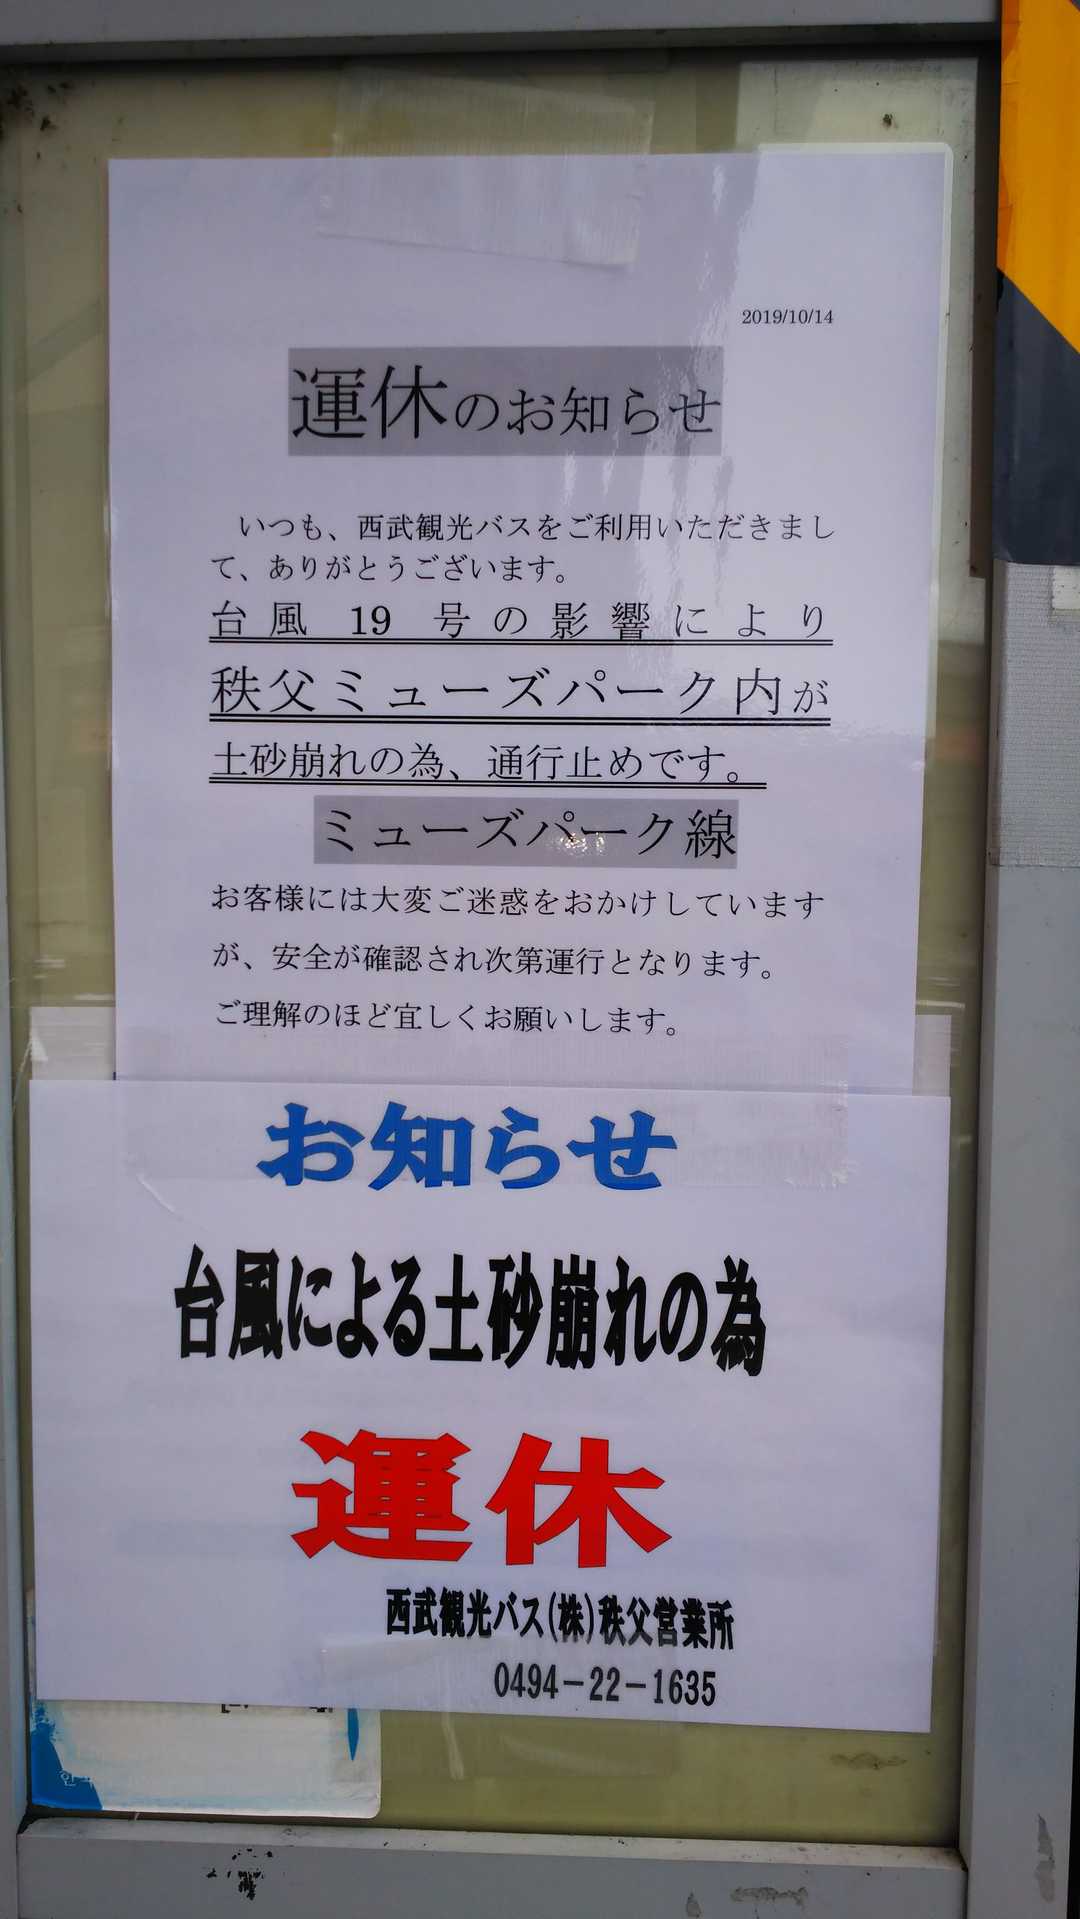 2019/10/14
運休のお知らせ
いつも、西武観光バスをご利用いただきまし
て、ありがとうございます。
台風19号の影響により
秩父ミューズパーク内が
土砂崩れの為、通行止めです。
ミューズパーク線
お客様には大変ご迷惑をおかけしています
が、安全が確認され次第運行となります。
ご理解のほど宜しくお願いします。
お知らせ
台風による土砂崩れの為
運休
西武観光バス(株)秩父営業所
0494-22-1635